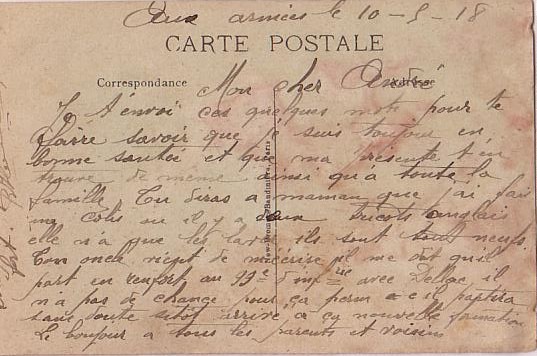 Aux armées le 10-5-18
CARTE POSTALE
Correspondance Adresse
Mon cher André
J t'envoi ces quelques mots pour te
faire savoir que je suis toujour en
bonne santée et que ma présente t'en
trouve de meme ainsi qu'a toute la
famille Tu diras a maman que j'ai fait
un colis ou il y a deux tricots anglais
elle n'a que les laver ils sont tout neufs.
Ton oncle vient de m'écrire il me dit qu'il
part en renfort au 99e d'inf rie avec Dellac il
n'a pas de chance pour ça perm e il partira
sans doute sitôt arrivé a ça nouvelle formation
Le bonjour a tous les parents et voisins